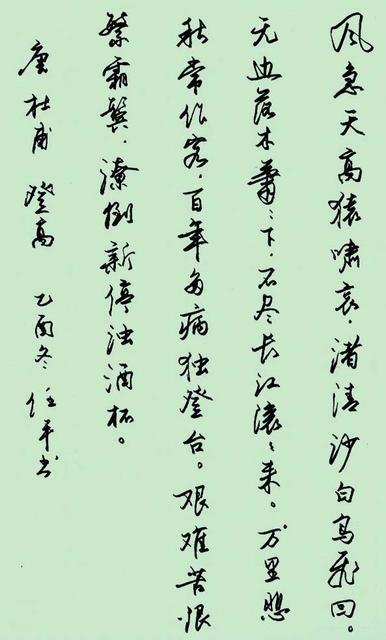 风急天高猿啸哀，渚清沙白鸟飞回。
无边落木萧〻下，不尽长江滚〻来。万里悲
秋常作客，百年多病独登台。艰难苦恨
繁霜鬓，潦倒新停浊酒杯。
唐 杜甫 登高 乙酉冬 任平书